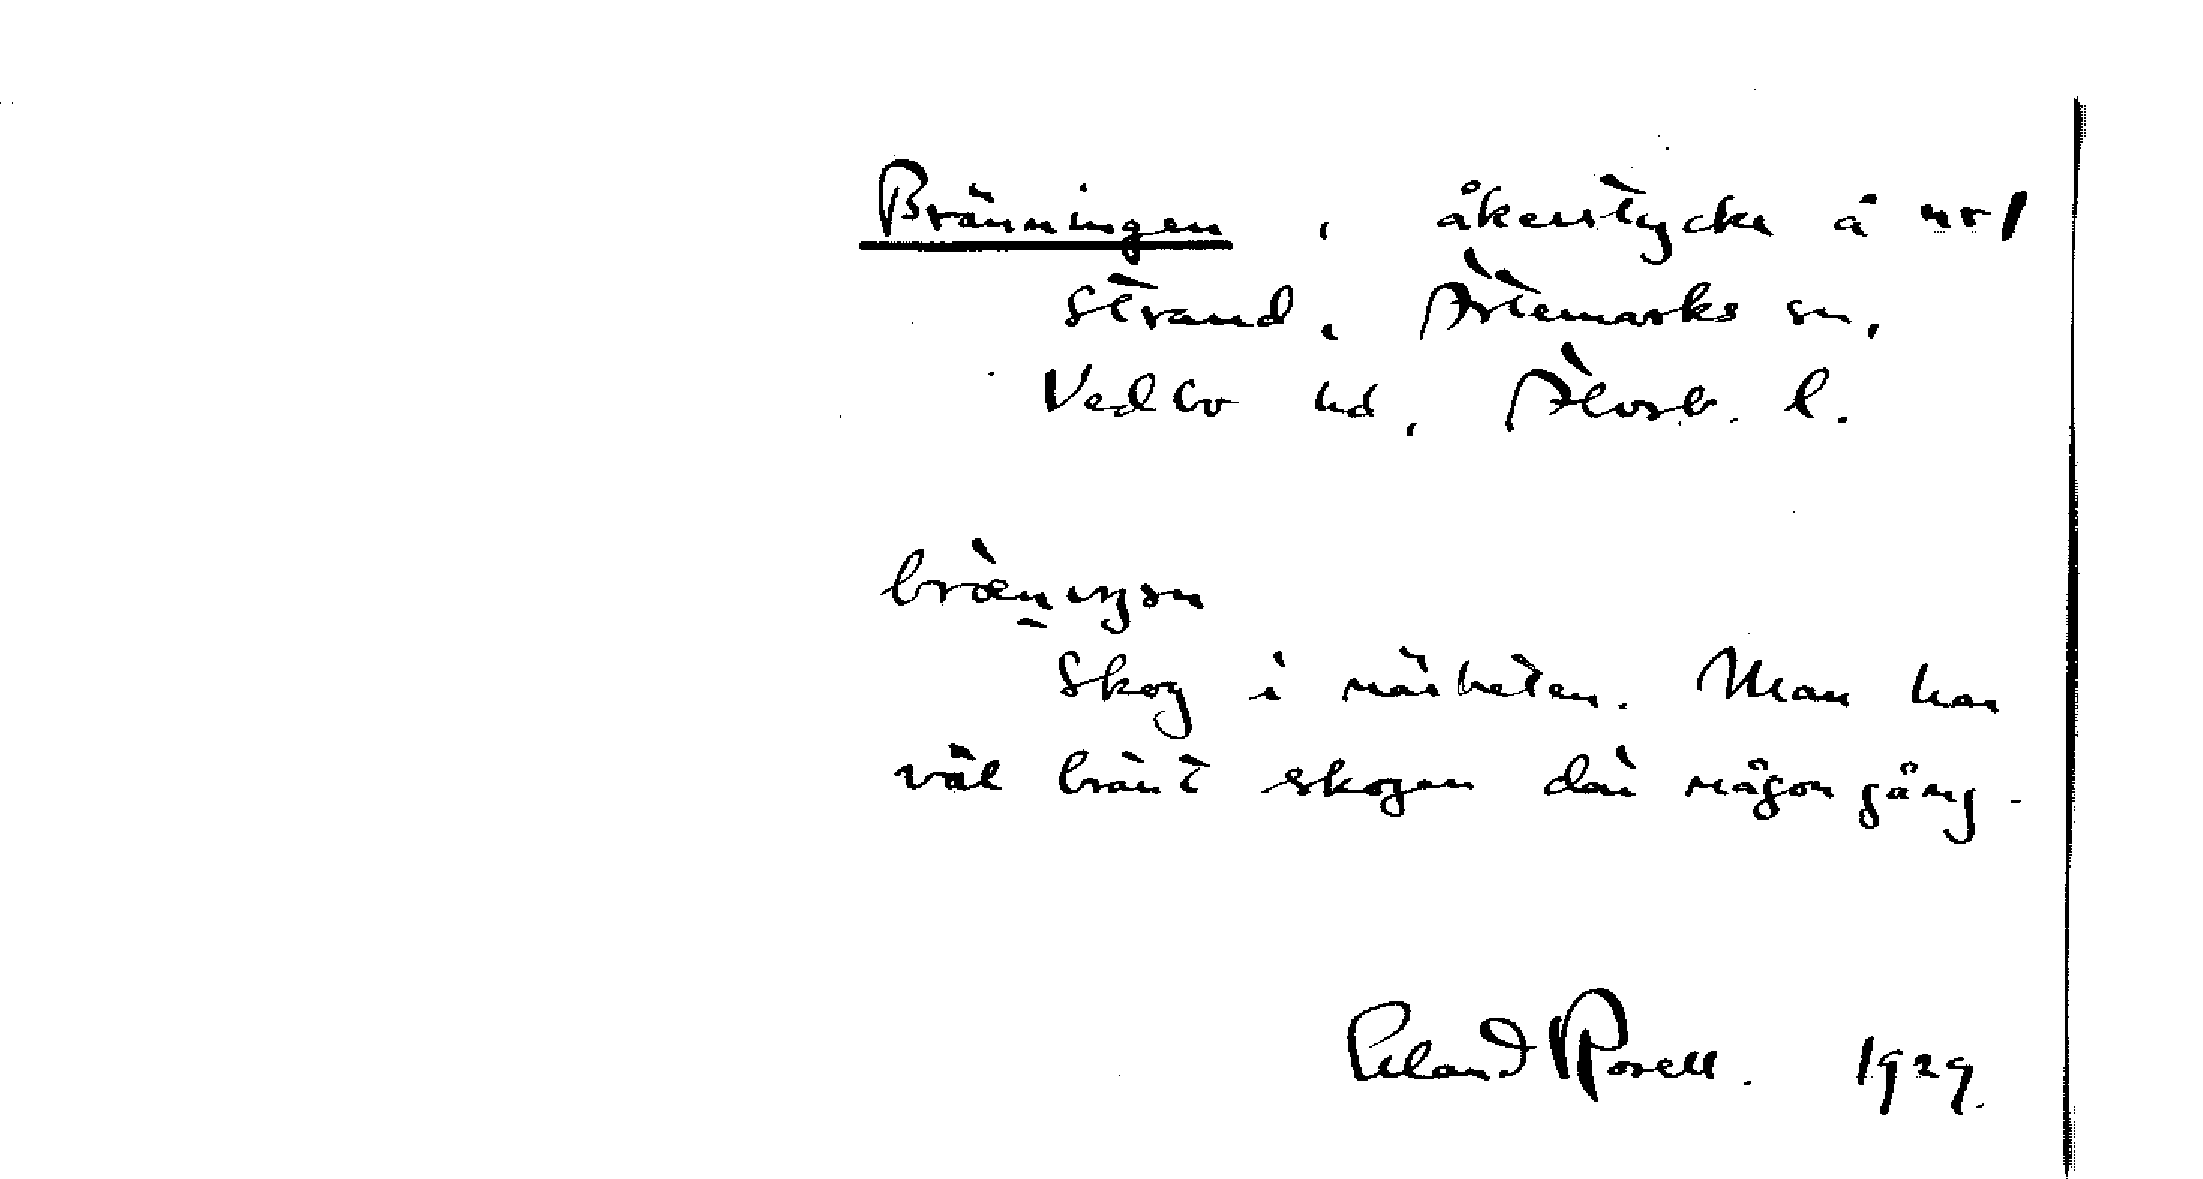 Bränningen, åkerstycke å nr 1
Strand, Ärtemarks sn,
Vedbo hd, Älvsb. l.
bræ̀n̠iŋən
Skog i närheten. Man har
väl bränt skogen där någon gång.
Erland Rosell. 1929.